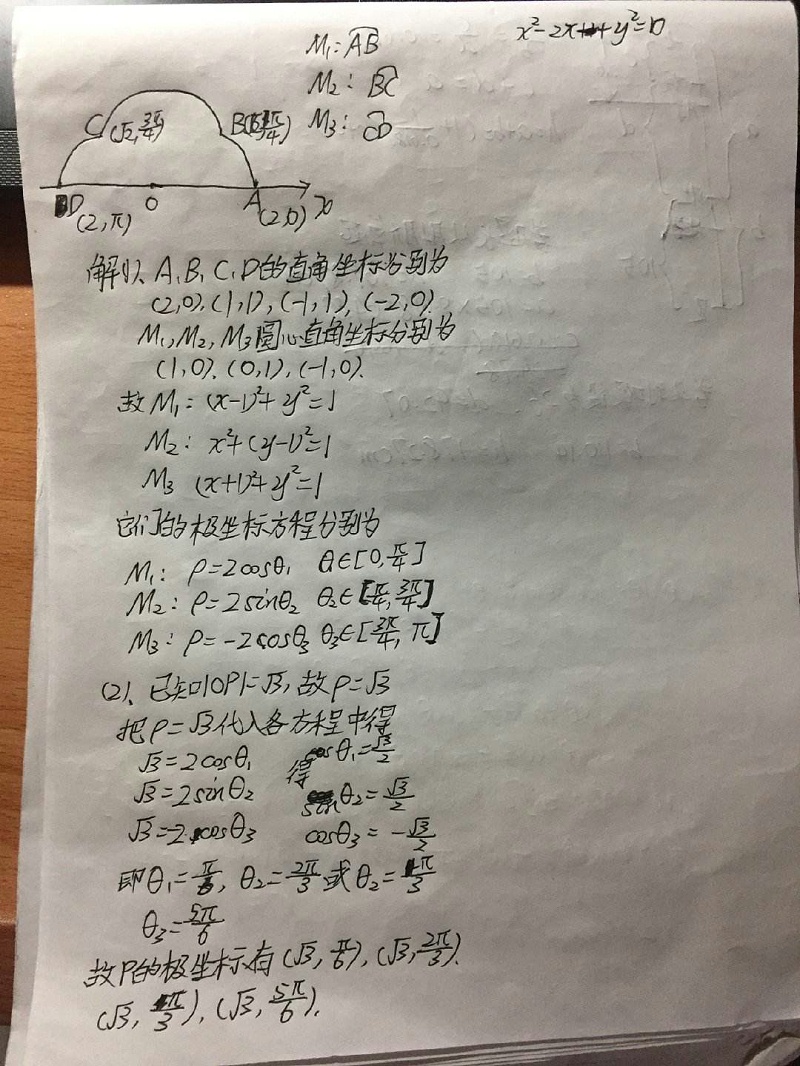 x²-2x+y²=0
M₁: AB
M₂: BC
M₃: CD
C(√2, 3π/4)
B
D(2,π) O A(2,0) x
解(1)、A,B,C,D的直角坐标分别为
(2,0),(1,1),(-1,1),(-2,0).
M₁,M₂,M₃圆心直角坐标分别为
(1,0).(0,1),(-1,0).
故M₁: (x-1)²+y²=1
M₂: x²+(y-1)²=1
M₃ (x+1)²+y²=1
它们的极坐标方程分别为
M₁: ρ=2cosθ₁ θ₁∈[0,π/4]
M₂: ρ=2sinθ₂ θ₂∈[π/4,3π/4]
M₃: ρ=-2cosθ₃ θ₃∈[3π/4,π]
(2)、已知|OP|=√3,故ρ=√3
把ρ=√3代入各方程中得
√3=2cosθ₁ 得 cosθ₁=√3/2
√3=2sinθ₂ sinθ₂=√3/2
√3=-2cosθ₃ cosθ₃=-√3/2
即θ₁=π/6, θ₂=2π/3或θ₂=π/3
θ₃=5π/6
故P的极坐标有(√3,π/6),(√3,2π/3).
(√3,π/3),(√3,5π/6).